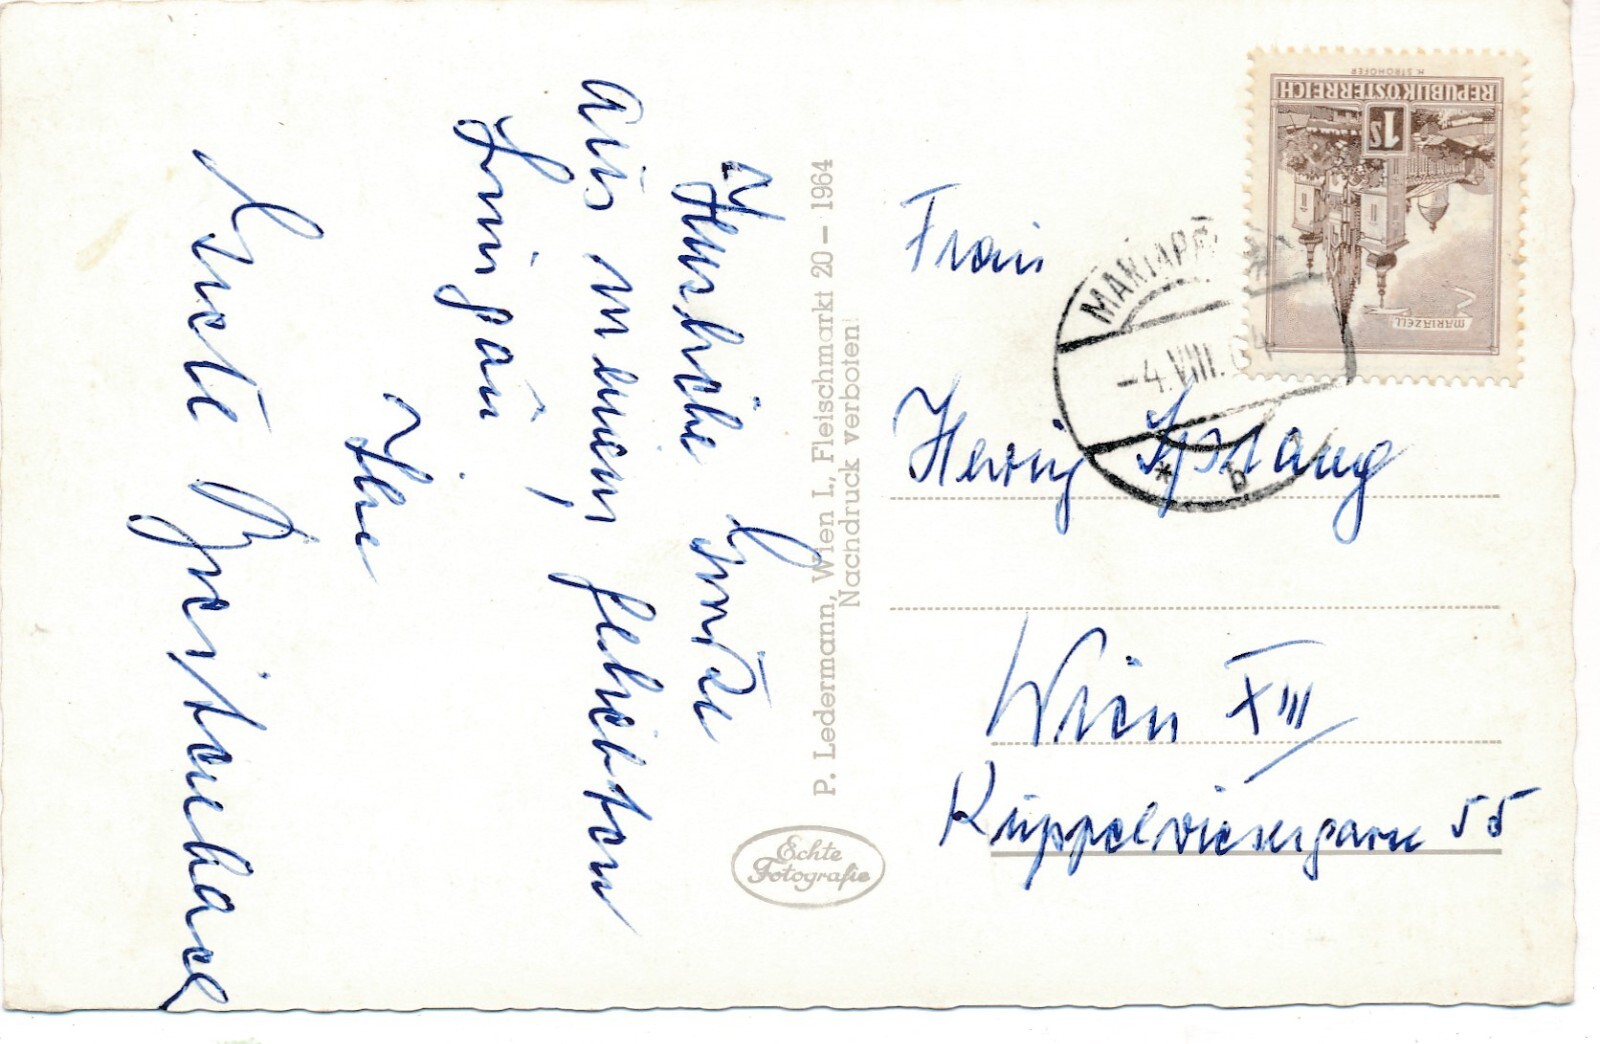 Herzliche Grüße
aus meinem geliebten
Lungau,
Ihre
P. Ledermann, Wien I., Fleischmarkt 20 – 1964
Nachdruck verboten!
Echte
Fotografie
H. STROHOFER
REPUBLIK ÖSTERREICH
1S
MARIAZELL
MARIAPF
-4.VIII.64
* b
Frau
Herwig
Wien XIII
Kuppelwiesergasse 55